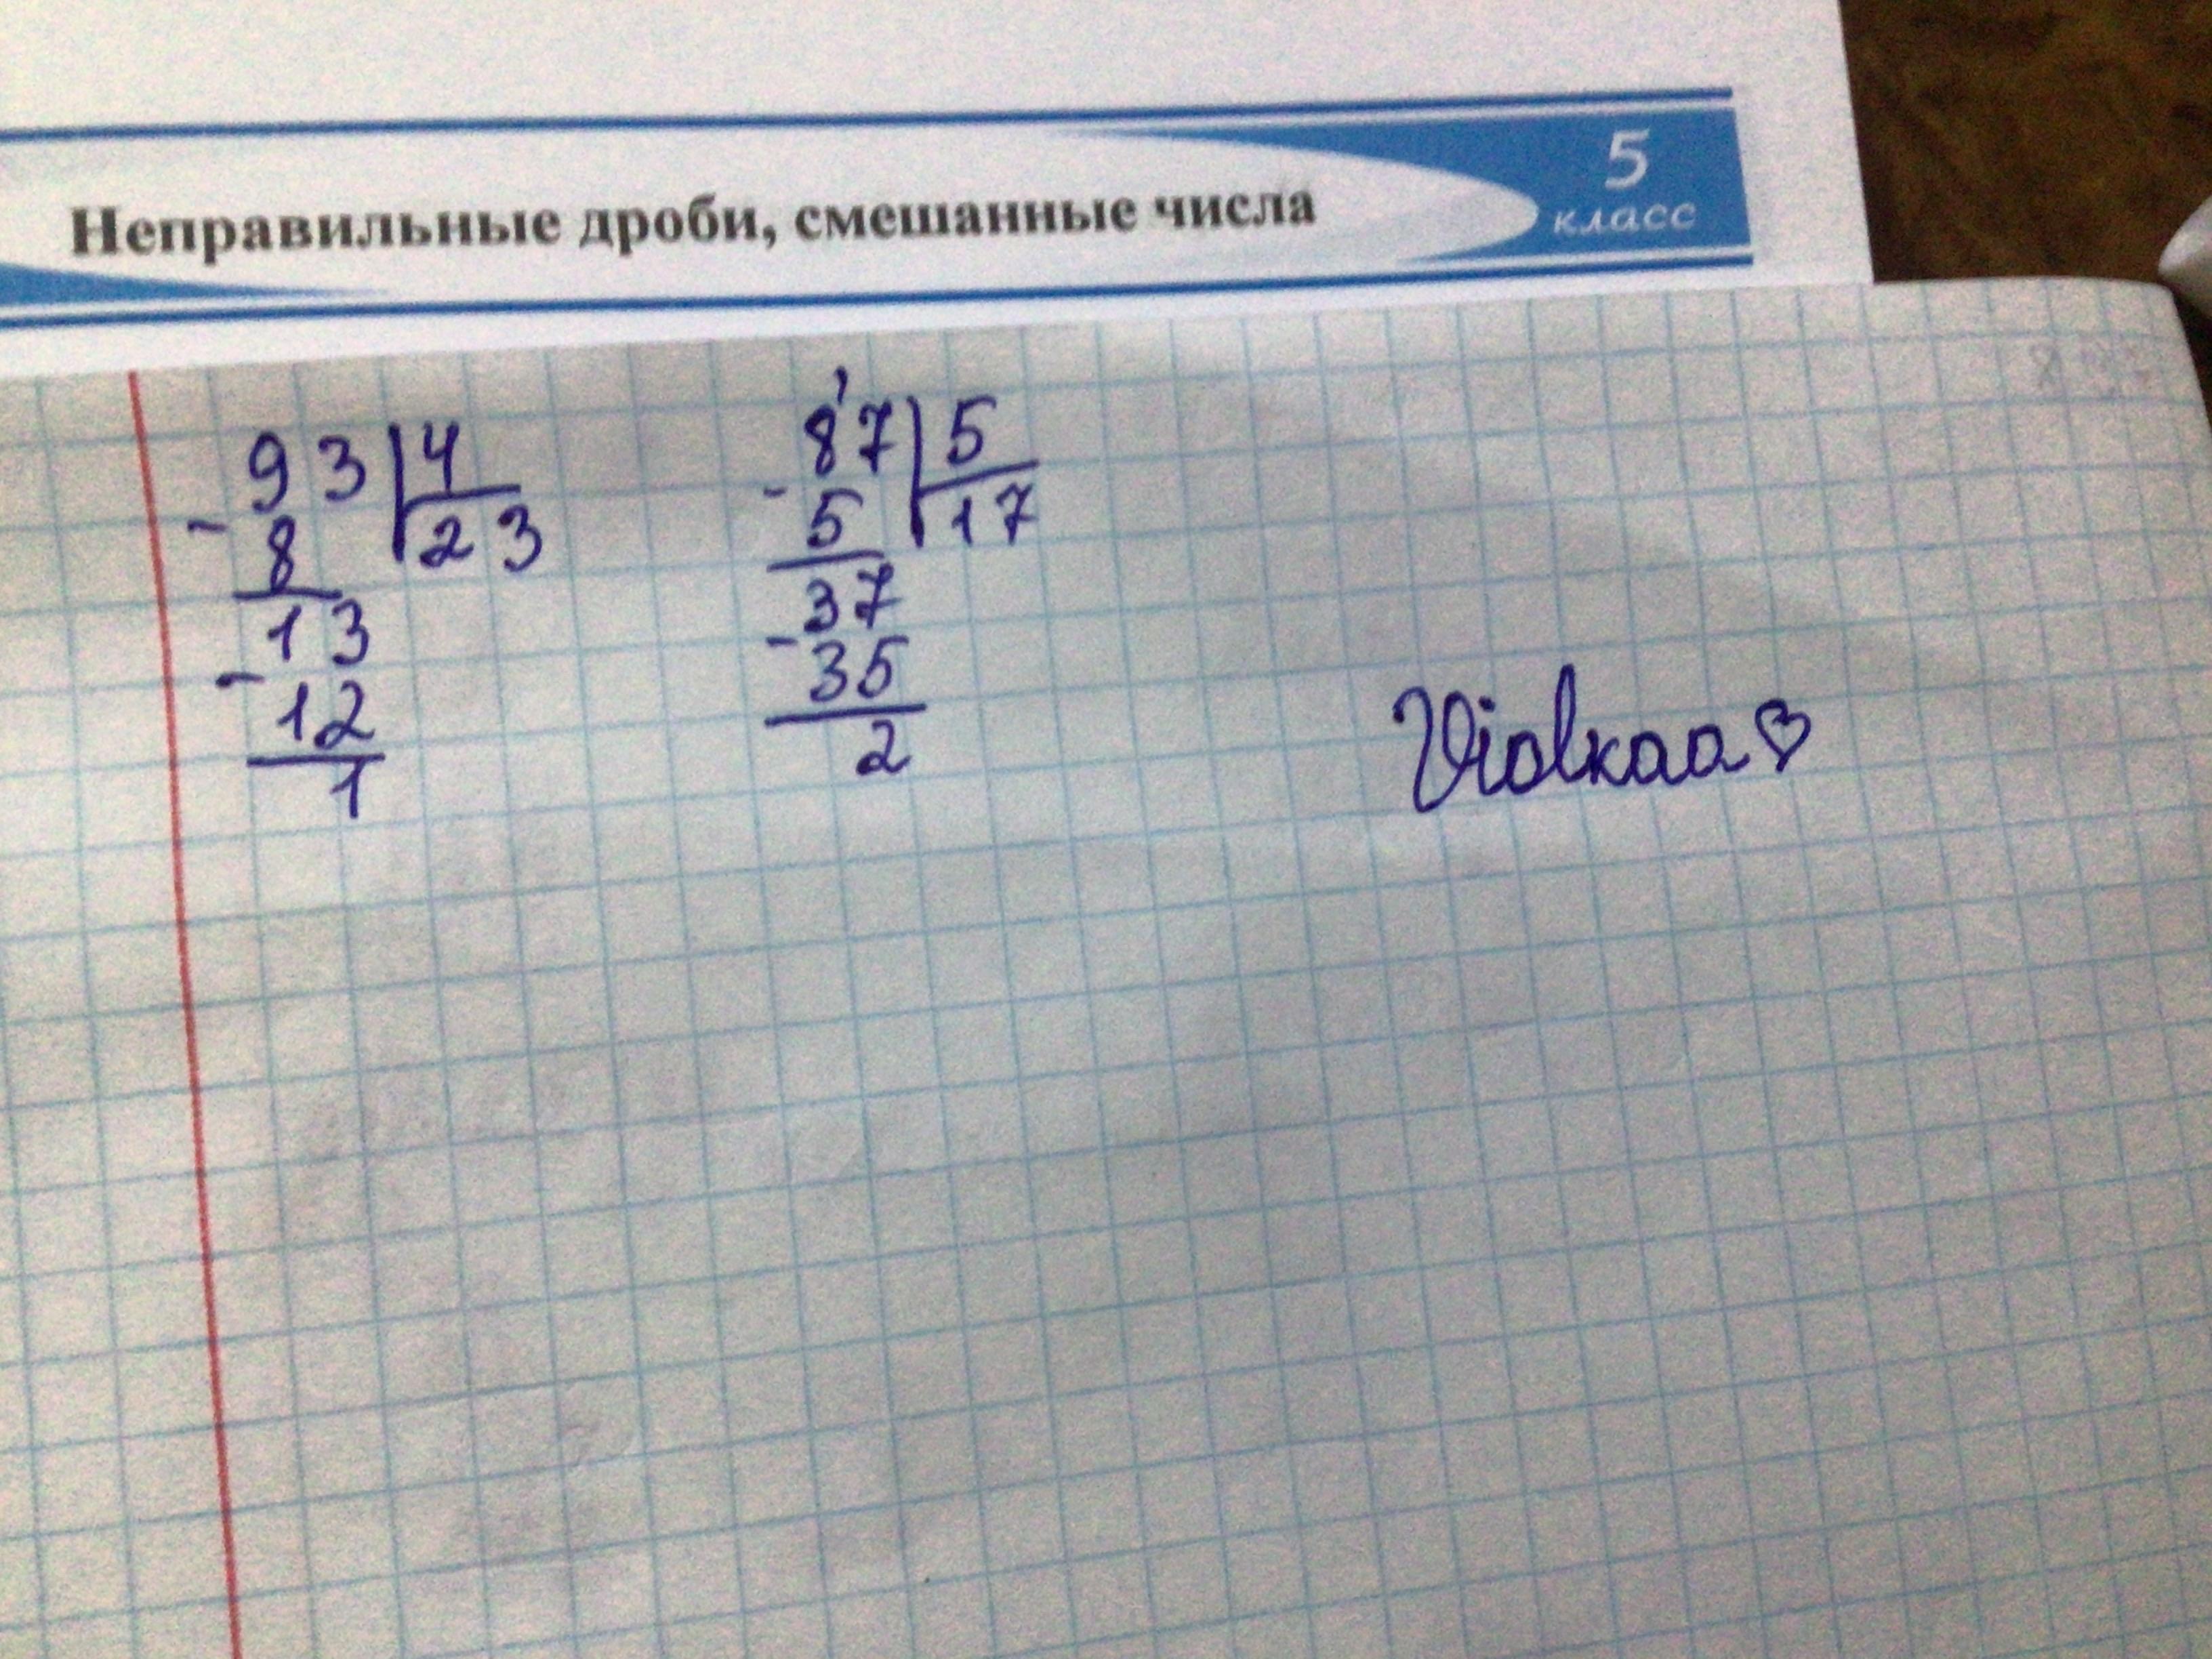 5
класс
Неправильные дроби, смешанные числа
93 4
- 8 23
13
- 12
1
87 5
- 5 17
37
- 35
2
Violkaa♡